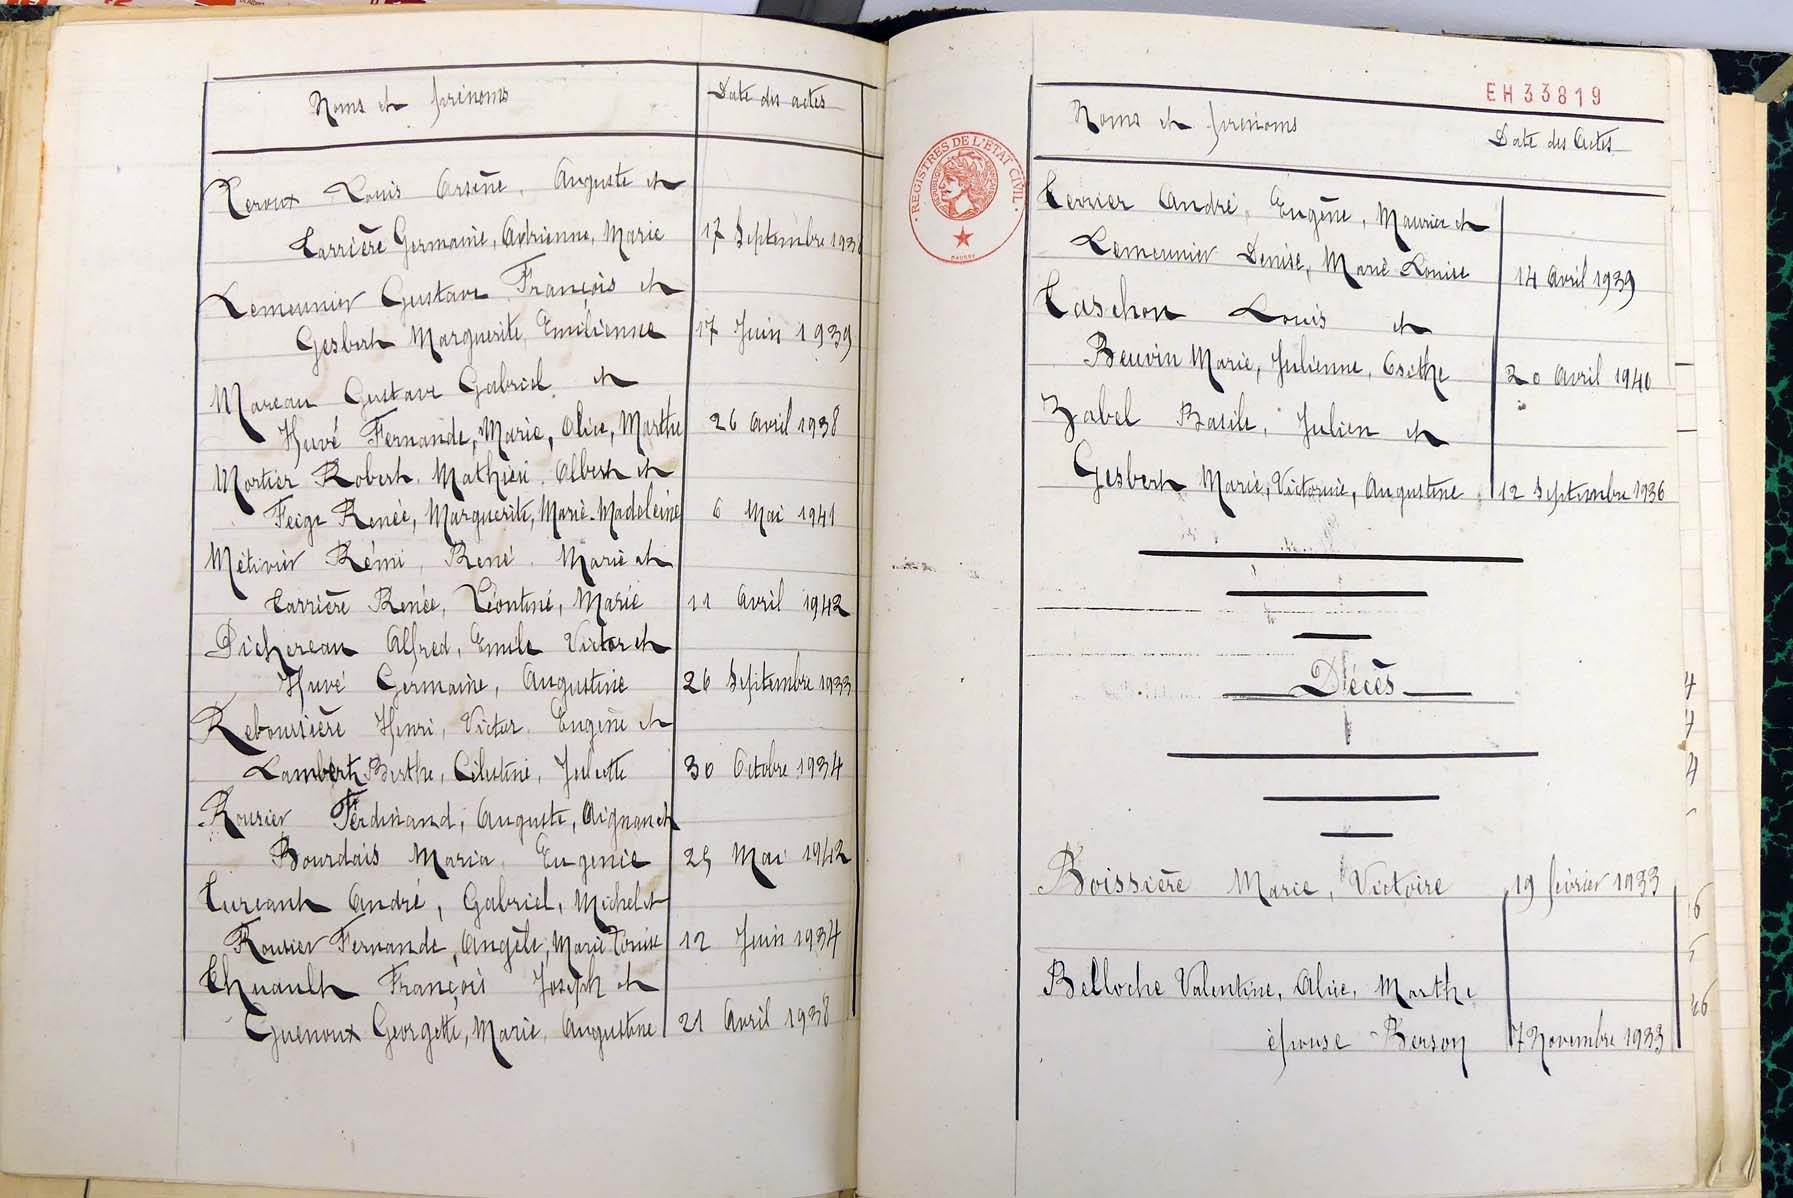 Noms et prénoms
Date des actes
Leroux Louis Arsène, Auguste et
Carrière Germaine, Adrienne, Marie 17 Septembre 1938
Lemeunier Gustave François et
Gesbert Marguerite, Emilienne 17 Juin 1939
Mareau Gustave Gabriel et
Huvé Fernande, Marie, Alice, Marthe 26 Avril 1938
Mortier Robert, Mathieu, Albert et
Feige Renée, Marguerite, Marie-Madeleine 6 Mai 1941
Métivier Rémi, René, Marie et
Carrière Renée, Léontine, Marie 11 Avril 1942
Pichereau Alfred, Emile Victor et
Huvé Germaine, Augustine 26 Septembre 1933
Reboursière Henri, Victor, Eugène et
Lambert Berthe, Célestine, Juliette 30 Octobre 1934
Rousier Ferdinand, Auguste, Aignan et
Bourdais Maria, Eugenie 25 Mai 1942
Tureault André, Gabriel, Michel et
Rousier Fernande, Angèle, Marie Louise 12 Juin 1934
Thuault François Joseph et
Guenoux Georgette, Marie, Augustine 21 Avril 1938
REGISTRES DE L'ETAT CIVIL
EH33819
Noms et prénoms
Date des Actes
Terrier André, Eugène, Maurice et
Lemeunier Denise, Marie Louise 14 Avril 1939
Taschon Louis et
Beuvin Marie, Julienne, Osithe 20 Avril 1940
Zabel Basile, Julien et
Gesbert Marie, Victorine, Augustine, 12 Septembre 1936
Décès
Boissière Marie, Victoire 19 février 1933
Belloche Valentine, Alice, Marthe
épouse Berson 7 Novembre 1933